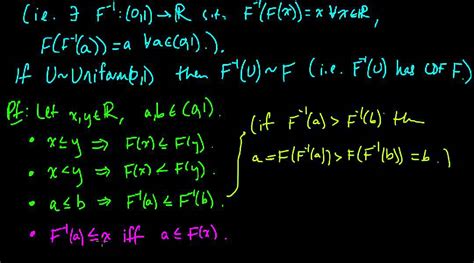 (i.e. ∃ F⁻¹: (0,1) → ℝ s.t. F⁻¹(F(x)) = x ∀x∈ℝ,
F(F⁻¹(a)) = a ∀a∈(0,1).)
If U~Uniform(0,1) then F⁻¹(U) ~ F (i.e. F⁻¹(U) has CDF F.)
Pf: Let x, y ∈ ℝ, a, b ∈ (0,1).
• x ≤ y ⇒ F(x) ≤ F(y).
• x < y ⇒ F(x) < F(y).
• a ≤ b ⇒ F⁻¹(a) ≤ F⁻¹(b).
(if F⁻¹(a) > F⁻¹(b) then
a = F(F⁻¹(a)) > F(F⁻¹(b)) = b.)
• F⁻¹(a) ≤ x iff a ≤ F(x).